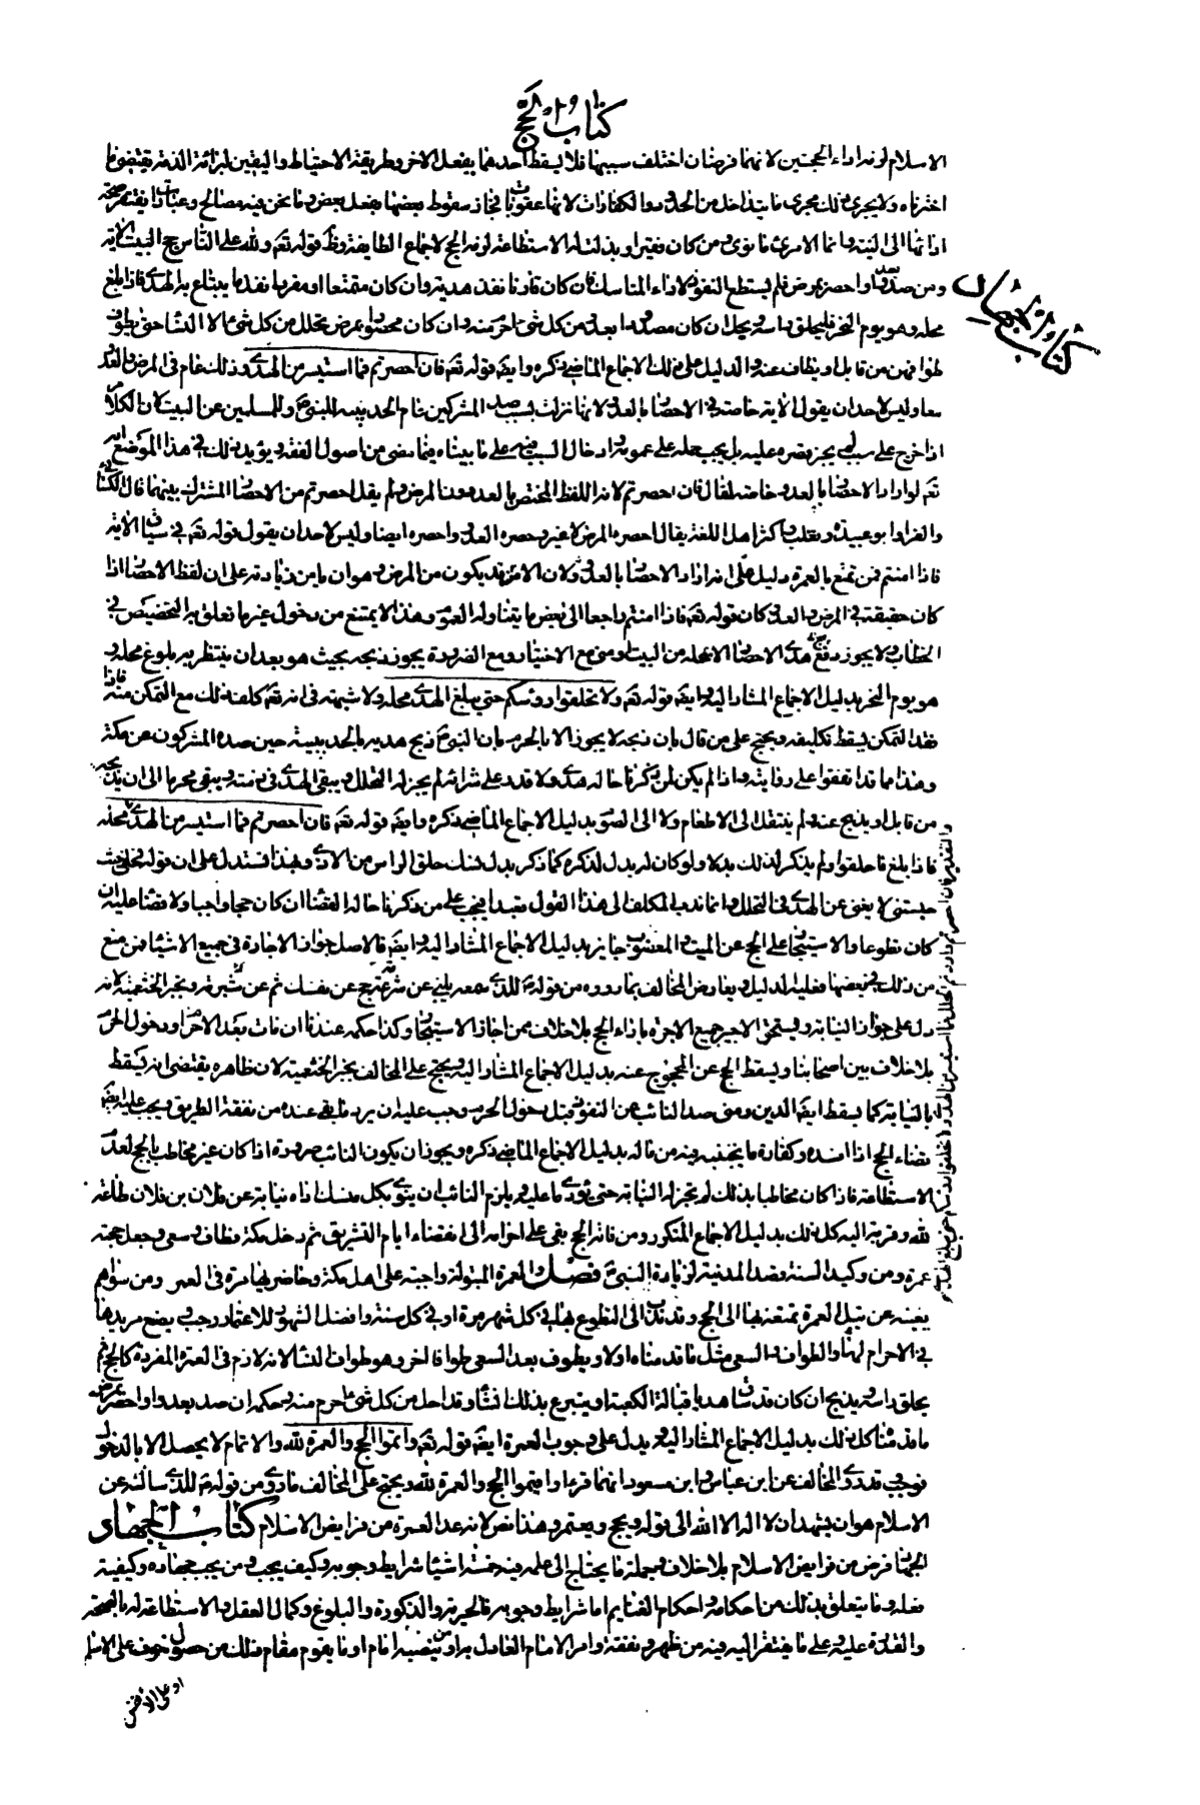 كتاب الحج
الاسلام لزمه اداء الحجتين لانهما فرضان اختلف سببهما فلا يسقط احدهما بفعل الاخر وطريقة الاحتياط واليقين لبرائة الذمة يقتضى ما
اخترناه ولا يجرى ذلك مجرى ما يتداخل من الحدود والكفارات لانها عقوبات فجاز سقوط بعضها بفعل بعض وما نحن فيه مصالح وعبادات يفتقر صحة
ادائها الى النية وانما لامرئ ما نوى ومن كان فقيرا وبذلت له الاستطاعة لزمه الحج لاجماع الطايفة وظ قوله تعـ ولله على الناس حج البيت الاية
ومن صد بعدو او احصر بمرض فلم يستطع النفوذ لاداء المناسك فان كان قارنا نفذ هديه وان كان متمتعا او مفردا نفذ ما يبتاع به الهدى فاذا بلغ
محله وهو يوم النحر فليحلق راسه ويحل ان كان مصدودا بعدو من كل شئ احرم منه وان كان محصورا بمرض تحلل من كل شئ الا النسا حتى يطوف
طوافهن من قابل او يطاف عنه والدليل على ذلك الاجماع الماضى ذكره وايضا قوله تعـ فان احصرتم فما استيسر من الهدى وذلك عام فى المرض والعدو
معا وليس لاحد ان يقول الاية خاصة فى الاحصار بالعدو لانها نزلت بسبب صد المشركين عام الحديبية للنبى ص وللمسلمين عن البيت لان الكلام
اذا خرج على سبب لم يجز قصره عليه بل يجب حمله على عمومه وادخال السبب فيه على ما بيناه فيما مضى من اصول الفقه ويؤيد ذلك فى هذا الموضع انه
تعـ لو اراد الاحصار بالعدو خاصة لقال فان احصرتم لانه اللفظ المختص بالعدو دون المرض ولم يقل احصرتم من الاحصار المشترك بينهما قال الكسائى
والفرا وابو عبيدة وثعلب واكثر اهل اللغة يقال احصره المرض لا غير وحصره العدو واحصره ايضا وليس لاحد ان يقول قوله تعـ فى سياق الاية
فاذا امنتم فمن تمتع بالعمرة دليل على انه اراد الاحصار بالعدو لان الامن قد يكون من المرض وهو ان يامن زيادته على ان لفظ الاحصار اذا
كان حقيقة فى المرض والعدو كان قوله تعـ فاذا امنتم راجعا الى بعض ما يتناوله العموم وهذا لا يمتنع من دخول غير ما تعلق به التخصيص فى
الخطاب ولا يجوز ذبح هدى الاحصار الا محله من البيت او منى مع الاختيار ومع الضرورة يجوز ذبحه بحيث هو بعد ان ينتظر به بلوغ محله و
هو يوم النحر بدليل الاجماع المشار اليه وايضا قوله تعـ ولا تحلقوا رؤسكم حتى يبلغ الهدى محله ولا شبهة فى انه تعـ كلف ذلك مع التمكن منه فاذا
فقد التمكن سقط تكليفه ويحتج على من قال بان ذبحه لا يجوز الا بالحرم بان النبى ص ذبح هديه بالحديبية حين صده المشركون عن مكة
وهذا مما قد اتفقوا على روايته واذا لم يكن لمن ذكرنا حاله هدى ولا قدر على شرائه لم يجز له التحلل ويبقى الهدى فى ذمته ويبقى محرما الى ان يذبحه
من قابل او يذبح عنه ولم ينتقل الى الاطعام ولا الى الصوم بدليل الاجماع الماضى ذكره وايضا قوله تعـ فان احصرتم فما استيسر من الهدى محله
فاذا بلغ فاحلقوا ولم يذكر لذلك بدلا ولو كان له بدل لذكره كما ذكر بدل نسك حلق الراس من الاذى وبهذا نستدل على ان قوله فحلنى حيث
حبستنى لا يغنى عن الهدى فى التحلل وانما ندب المكلف الى هذا القول تعبدا فيجب على من ذكرنا حاله القضا ان كان حجا واجبا ولا قضا عليه ان
كان تطوعا والاستيجار على الحج عن الميت والمعضوب جايز بدليل الاجماع المشار اليه وايضا فالاصل جواز الاجارة فى جميع الاشيا فمن منع
من ذلك فى بعضها فعليه الدليل ويعارض المخالف بما رووه من قوله ص للذى سمعه يلبى عن شبرمة حج عن نفسك ثم عن شبرمة وبخبر الخثعمية لانه
دل على جواز النيابة ويستحق الاجير جميع الاجرة باداء الحج بلا خلاف ممن اجاز الاستيجار وكذا حكمه عندنا ان مات بعد الاحرام ودخول الحرم
بلا خلاف بين اصحابنا ويسقط الحج عن المحجوج عنه بدليل الاجماع المشار اليه ويحتج على المخالف بخبر الخثعمية لان ظاهره يقتضى انه يسقط
بالنيابة كما يسقط ايضا الدين ومتى صد النائب عن النفوذ قبل دخول الحرم وجب عليه ان يرد ما بقى عنده من نفقة الطريق ويجب عليه ايضا
قضاء الحج اذا افسده وكفارة ما يجنيه فيه من ماله بدليل الاجماع الماضى ذكره ويجوز ان يكون النائب صرورة اذا كان غير مخاطب بالحج لعدم
الاستطاعة فاذا كان مخاطبا بذلك لم تجز له النيابة حتى يؤدى ما عليه ويلزم النائب ان ينوى بكل منسك اداه نيابة عن فلان بن فلان طاعة
لله وقربة اليه كل ذلك بدليل الاجماع المذكور ومن فاته الحج بقى على احرامه الى انقضاء ايام التشريق ثم دخل مكة فطاف وسعى وجعل حجته
عمرة ومن وكيد السنة قصد المدينة لزيارة النبى ص فصل والعمرة المبتولة واجبة على اهل مكة وحاضريها مرة فى العمر ومن سواهم
يغنيه عن تبتيل العمرة تمتعه بها الى الحج وقد ندب الى التطوع بها فى كل شهر مرة او فى كل سنة وافضل الشهور للاعتمار رجب ويصنع مريدها
فى الاحرام لها والطواف والسعى مثل ما قدمناه اولا ويطوف بعد السعى طوافا اخر وهو طواف النسا لانه لازم فى العمرة المفردة كالحج ثم
يحلق راسه ويذبح ان كان قد ساق هديا قبالة الكعبة او يتبرع بذلك ان شا وقد احل من كل شئ احرم منه وحكمه ان صد بعدو او احصر بمرض
ما قدمنا كل ذلك بدليل الاجماع المشار اليه ويدل على وجوب العمرة ايضا قوله تعـ واتموا الحج والعمرة لله والاتمام لا يحصل الا بالدخول
فوجب وقد روى المخالف عن ابن عباس وابن مسعود انهما قرءا واقيموا الحج والعمرة لله ويحتج على المخالف بما روى من قوله ص للذى ساله عن
الاسلام هو ان يشهد ان لا اله الا الله الى قوله ويحج ويعتمر وهذا نص لانه عد العمرة من فرايض الاسلام كتاب الجهاد
الجهاد فرض من فرايض الاسلام بلا خلاف وجملة ما يحتاج الى علمه فيه خمسة اشيا شرايط وجوبه وكيف يجب ومن يجب جهاده وكيفية
فعله وما يتعلق بذلك من احكامه واحكام الغنايم اما شرايط وجوبه فالحرية والذكورة والبلوغ وكمال العقل والاستطاعة له بالصحة
والقدرة عليه وعلى ما يفتقر اليه فيه من ظهر ونفقة وامر الامام العادل به او من نصبه الامام او ما يقوم مقام ذلك من حصول خوف على الاسلام
او على الانفس
كتاب الجهاد
والتقدير فان احصرتم واردتم التحلل فما استيسر من الهدى ولا تحلقوا رؤسكم حتى يبلغ الهدى